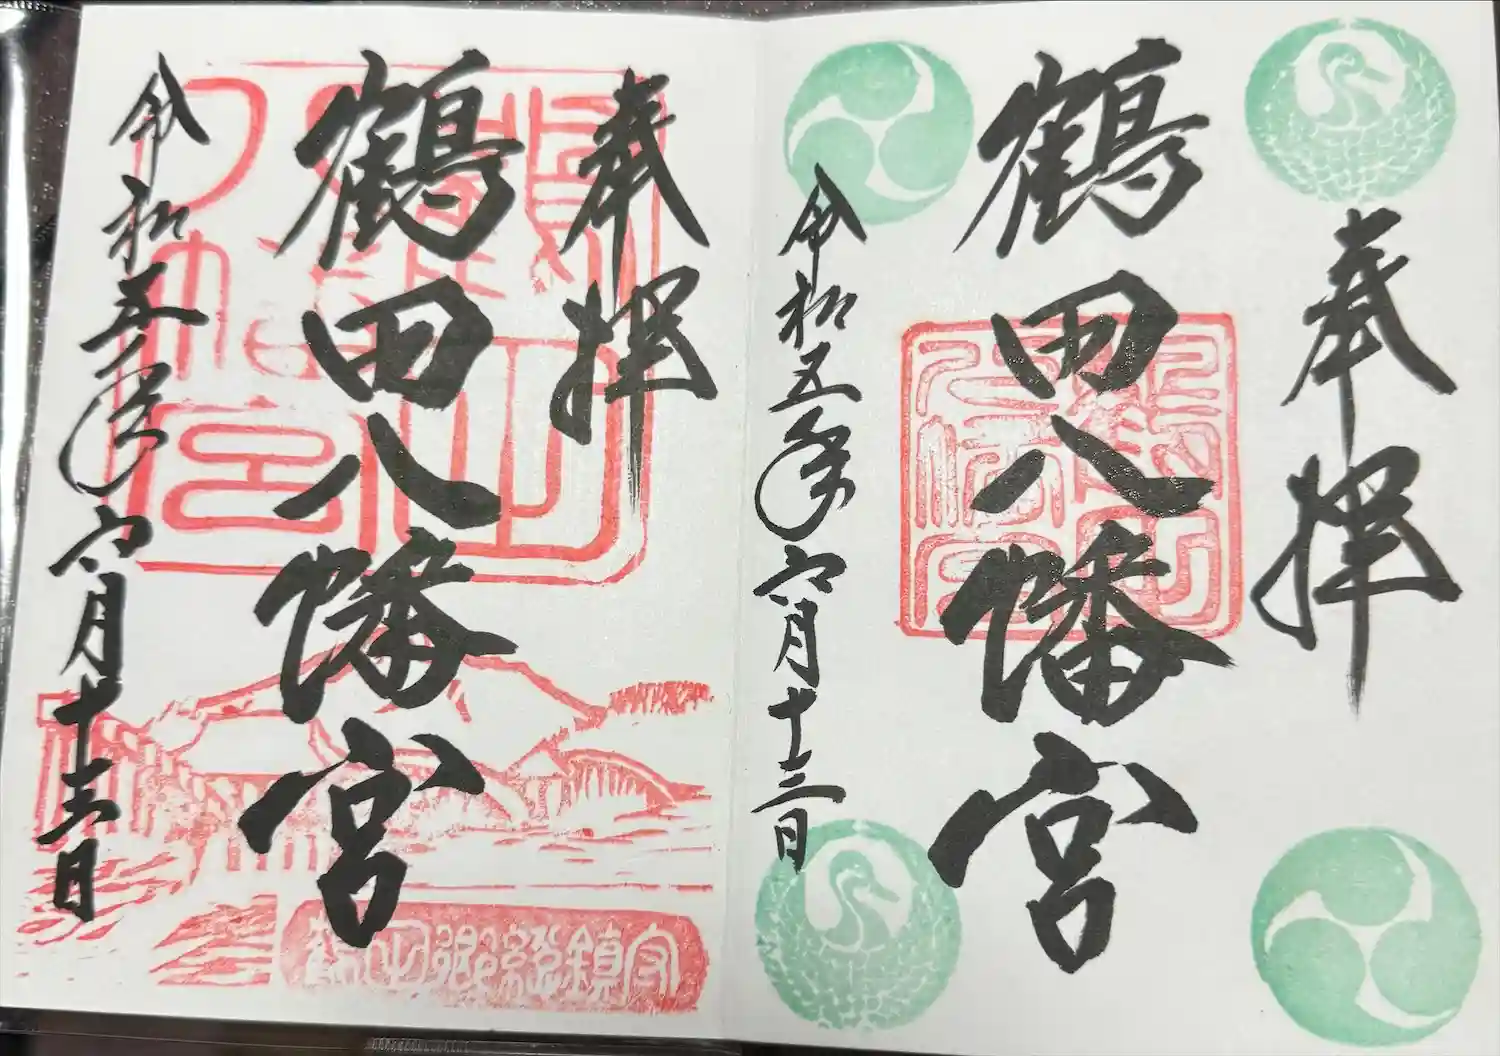 奉拝
鶴田八幡宮
令和五年六月十三日
奉拝
鶴田八幡宮
令和五年六月十三日
鶴田郷総鎮守